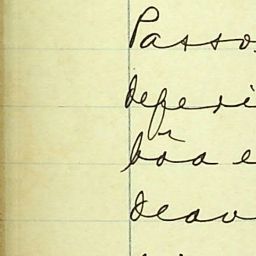 Passo
deferi
bôa e
deav